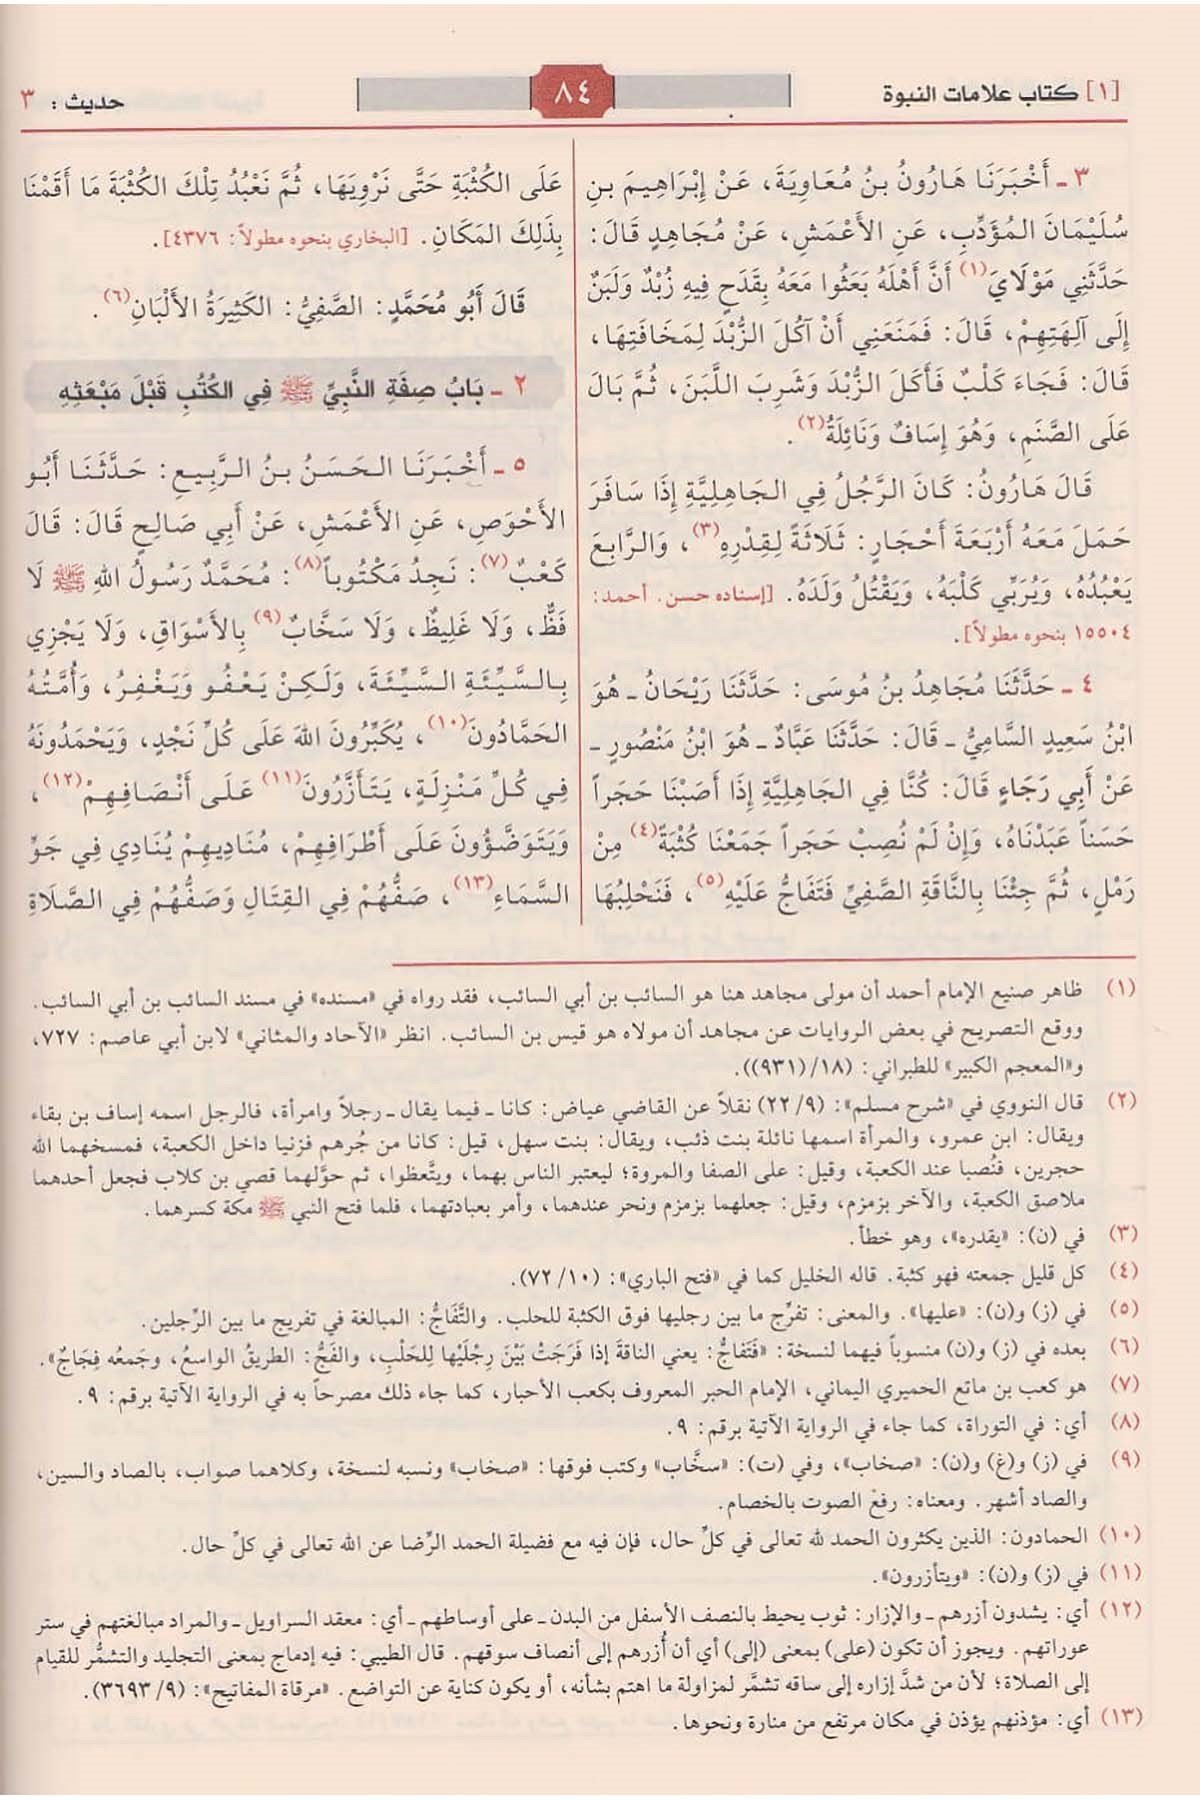 [١] كتاب علامات النبوة
٨٤
حديث : ٣
٣ ـ أَخْبَرَنَا هَارُونُ بنُ مُعَاوِيَةَ، عَنْ إِبْرَاهِيمَ بنِ
سُلَيْمَانَ المُؤَدِّبِ، عَنِ الأَعْمَشِ، عَنْ مُجَاهِدٍ قَالَ:
حَدَّثَنِي مَوْلَايَ(١) أَنَّ أَهْلَهُ بَعَثُوا مَعَهُ بِقَدَحٍ فِيهِ زُبْدٌ وَلَبَنٌ
إِلَى آلِهَتِهِمْ، قَالَ: فَمَنَعَنِي أَنْ آكُلَ الزُّبْدَ لِمَخَافَتِهَا،
قَالَ: فَجَاءَ كَلْبٌ فَأَكَلَ الزُّبْدَ وَشَرِبَ اللَّبَنَ، ثُمَّ بَالَ
عَلَى الصَّنَمِ، وَهُوَ إِسَافٌ وَنَائِلَةُ(٢).
قَالَ هَارُونُ: كَانَ الرَّجُلُ فِي الجَاهِلِيَّةِ إِذَا سَافَرَ
حَمَلَ مَعَهُ أَرْبَعَةَ أَحْجَارٍ: ثَلَاثَةً لِقِدْرِهِ(٣)، وَالرَّابِعَ
يَعْبُدُهُ، وَيُرَبِّي كَلْبَهُ، وَيَقْتُلُ وَلَدَهُ. [إسناده حسن. أحمد:
١٥٥٠٤ بنحوه مطولاً].
٤ ـ حَدَّثَنَا مُجَاهِدُ بنُ مُوسَى: حَدَّثَنَا رَيْحَانُ ـ هُوَ
ابْنُ سَعِيدٍ السَّامِيُّ ـ قَالَ: حَدَّثَنَا عَبَّادٌ ـ هُوَ ابْنُ مَنْصُورٍ ـ
عَنْ أَبِي رَجَاءٍ قَالَ: كُنَّا فِي الجَاهِلِيَّةِ إِذَا أَصَبْنَا حَجَراً
حَسَناً عَبَدْنَاهُ، وَإِنْ لَمْ نُصِبْ حَجَراً جَمَعْنَا كُثْبَةً(٤) مِنْ
رَمْلٍ، ثُمَّ جِئْنَا بِالنَّاقَةِ الصَّفِيِّ فَتَفَاجُّ عَلَيْهِ(٥)، فَنَحْلِبُهَا
عَلَى الكُثْبَةِ حَتَّى نَرْوِيَهَا، ثُمَّ نَعْبُدُ تِلْكَ الكُثْبَةَ مَا أَقَمْنَا
بِذَلِكَ المَكَانِ. [البخاري بنحوه مطولاً: ٤٣٧٦].
قَالَ أَبُو مُحَمَّدٍ: الصَّفِيُّ: الكَثِيرَةُ الأَلْبَانِ(٦).
٢ ـ بَابُ صِفَةِ النَّبِيِّ ﷺ فِي الكُتُبِ قَبْلَ مَبْعَثِهِ
٥ ـ أَخْبَرَنَا الحَسَنُ بنُ الرَّبِيعِ: حَدَّثَنَا أَبُو
الأَحْوَصِ، عَنِ الأَعْمَشِ، عَنْ أَبِي صَالِحٍ قَالَ: قَالَ
كَعْبٌ(٧): نَجِدُ مَكْتُوباً(٨): مُحَمَّدٌ رَسُولُ اللهِ ﷺ لَا
فَظٌّ، وَلَا غَلِيظٌ، وَلَا سَخَّابٌ(٩) بِالأَسْوَاقِ، وَلَا يَجْزِي
بِالسَّيِّئَةِ السَّيِّئَةَ، وَلَكِنْ يَعْفُو وَيَغْفِرُ، وَأُمَّتُهُ
الحَمَّادُونَ(١٠)، يُكَبِّرُونَ اللهَ عَلَى كُلِّ نَجْدٍ، وَيَحْمَدُونَهُ
فِي كُلِّ مَنْزِلَةٍ، يَتَأَزَّرُونَ(١١) عَلَى أَنْصَافِهِمْ(١٢)،
وَيَتَوَضَّؤُونَ عَلَى أَطْرَافِهِمْ، مُنَادِيهِمْ يُنَادِي فِي جَوِّ
السَّمَاءِ(١٣)، صَفُّهُمْ فِي القِتَالِ وَصَفُّهُمْ فِي الصَّلَاةِ
(١) ظاهر صنيع الإمام أحمد أن مولى مجاهد هنا هو السائب بن أبي السائب، فقد رواه في «مسنده» في مسند السائب بن أبي السائب.
ووقع التصريح في بعض الروايات عن مجاهد أن مولاه هو قيس بن السائب. انظر «الآحاد والمثاني» لابن أبي عاصم: ٧٢٧،
و«المعجم الكبير» للطبراني: (١٨/(٩٣١)).
(٢) قال النووي في «شرح مسلم»: (٩/ ٢٢) نقلاً عن القاضي عياض: كانا ـ فيما يقال ـ رجلاً وامرأة، فالرجل اسمه إساف بن بقاء
ويقال: ابن عمرو، والمرأة اسمها نائلة بنت ذئب، ويقال: بنت سهل، قيل: كانا من جُرهم فزنيا داخل الكعبة، فمسخهما الله
حجرين، فنُصبا عند الكعبة، وقيل: على الصفا والمروة؛ ليعتبر الناس بهما، ويتَّعظوا، ثم حوَّلهما قصي بن كلاب فجعل أحدهما
ملاصق الكعبة، والآخر بزمزم، وقيل: جعلهما بزمزم ونحر عندهما، وأمر بعبادتهما، فلما فتح النبي ﷺ مكة كسرهما.
(٣) في (ن): «يقدره»، وهو خطأ.
(٤) كل قليل جمعته فهو كثبة. قاله الخليل كما في «فتح الباري»: (١٠/ ٧٢).
(٥) في (ز) و(ن): «عليها». والمعنى: تفرِّج ما بين رجليها فوق الكثبة للحلب. والتَّفَاجُّ: المبالغة في تفريج ما بين الرِّجلين.
(٦) بعده في (ز) و(ن) منسوباً فيهما لنسخة: «فَتَفاجُّ: يعني الناقةَ إذا فَرَجَتْ بَيْنَ رِجْلَيْها لِلحَلْبِ، والفَجُّ: الطريقُ الواسعُ، وجَمعُه فِجَاجٌ».
(٧) هو كعب بن ماتع الحميري اليماني، الإمام الحبر المعروف بكعب الأحبار، كما جاء ذلك مصرحاً به في الرواية الآتية برقم: ٩.
(٨) أي: في التوراة، كما جاء في الرواية الآتية برقم: ٩.
(٩) في (ز) و(غ) و(ن): «صخاب»، وفي (ت): «سخَّاب» وكتب فوقها: «صخاب» ونسبه لنسخة، وكلاهما صواب، بالصاد والسين،
والصاد أشهر. ومعناه: رفعُ الصوت بالخصام.
(١٠) الحمادون: الذين يكثرون الحمد لله تعالى في كلِّ حال، فإن فيه مع فضيلة الحمد الرِّضا عن الله تعالى في كلِّ حال.
(١١) في (ز) و(ن): «ويتأزرون».
(١٢) أي: يشدون أزرهم ـ والإزار: ثوب يحيط بالنصف الأسفل من البدن ـ على أوساطهم ـ أي: معقد السراويل ـ والمراد مبالغتهم في ستر
عوراتهم. ويجوز أن تكون (على) بمعنى (إلى) أي أن أُزرهم إلى أنصاف سوقهم. قال الطيبي: فيه إدماج بمعنى التجليد والتشمُّر للقيام
إلى الصلاة؛ لأن من شدَّ إزاره إلى ساقه تشمَّر لمزاولة ما اهتم بشأنه، أو يكون كناية عن التواضع. «مرقاة المفاتيح»: (٩/ ٣٦٩٣).
(١٣) أي: مؤذنهم يؤذن في مكان مرتفع من منارة ونحوها.